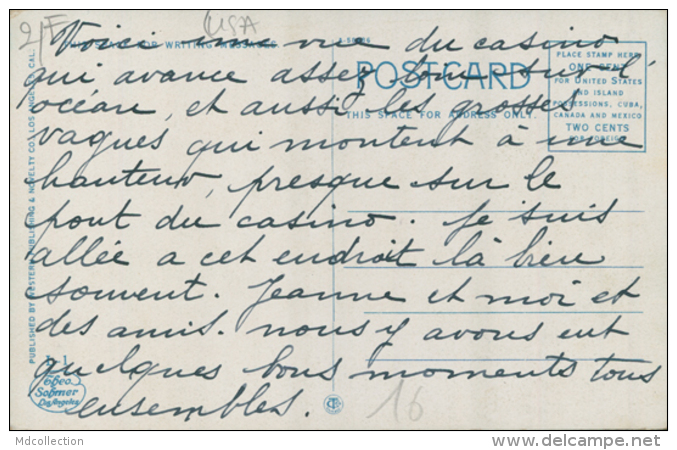 2/F
USA
Voici une vue du casino
qui avance assez loin sur l'
océan, et aussi les grosses
vagues qui montent à une
hauteur, presque sur le
pont du casino. Je suis
allée a cet endroit là bien
souvent. Jeanne et moi et
des amis. nous y avons eut
quelques bons moments tous
ensembles.
16
THIS SPACE FOR WRITING MESSAGES
POSTCARD
THIS SPACE FOR ADDRESS ONLY.
PLACE STAMP HERE
ONE CENT
FOR UNITED STATES
AND ISLAND
POSSESSIONS, CUBA,
CANADA AND MEXICO
TWO CENTS
FOR FOREIGN
PUBLISHED BY WESTERN PUBLISHING & NOVELTY CO., LOS ANGELES, CAL.
Theo.
Sohmer
Los Angeles
Mdcollection
http://www.delcampe.net